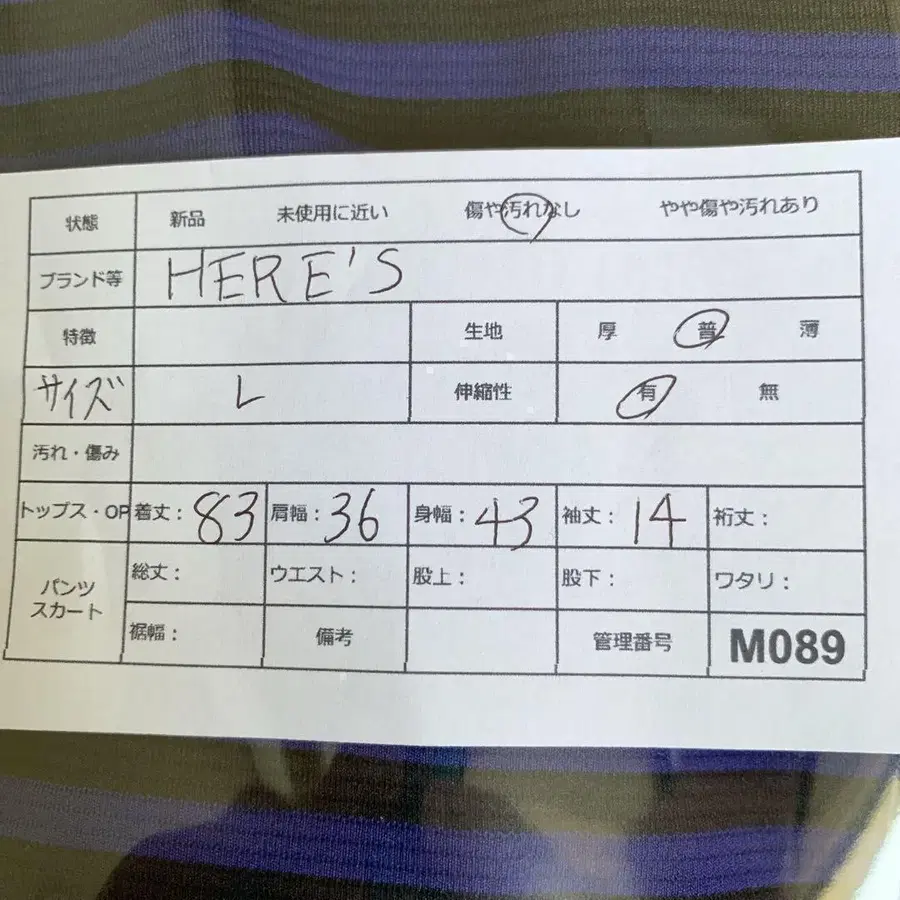 状態 新品 未使用に近い 傷や汚れなし やや傷や汚れあり
ブランド等 HERE'S
特徴 生地 厚 普 薄
サイズ L 伸縮性 有 無
汚れ・傷み
トップス・OP 着丈：83 肩幅：36 身幅：43 袖丈：14 裄丈：
パンツ 総丈： ウエスト： 股上： 股下： ワタリ：
スカート
裾幅： 備考 管理番号 M089